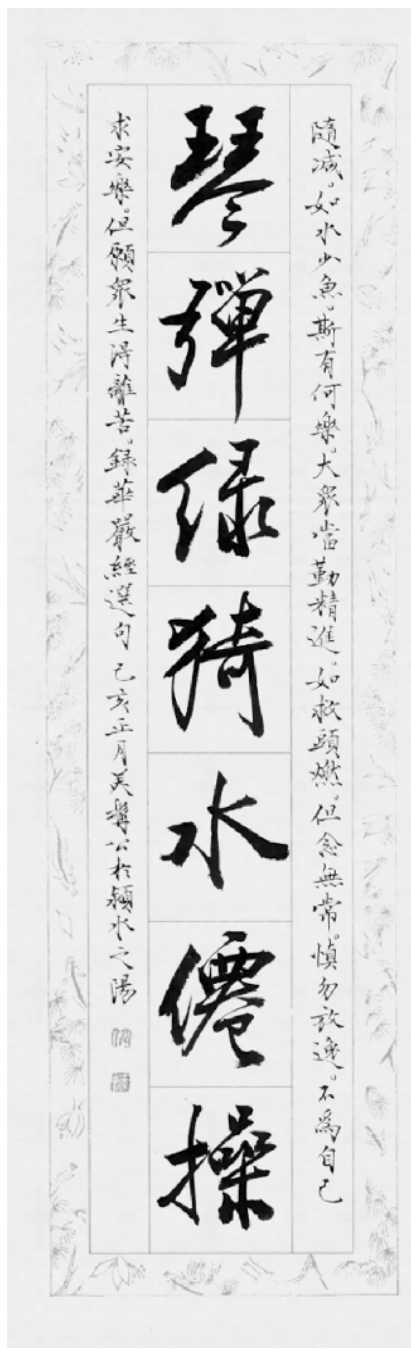 隨減。如水少魚。斯有何樂。大衆當勤精進。如救頭燃。但念無常。慎勿放逸。不為自己
琴彈绿猗水僊操
求安樂。但願衆生得離苦。録華嚴經選句 己亥正月美髯公於潁水之陽